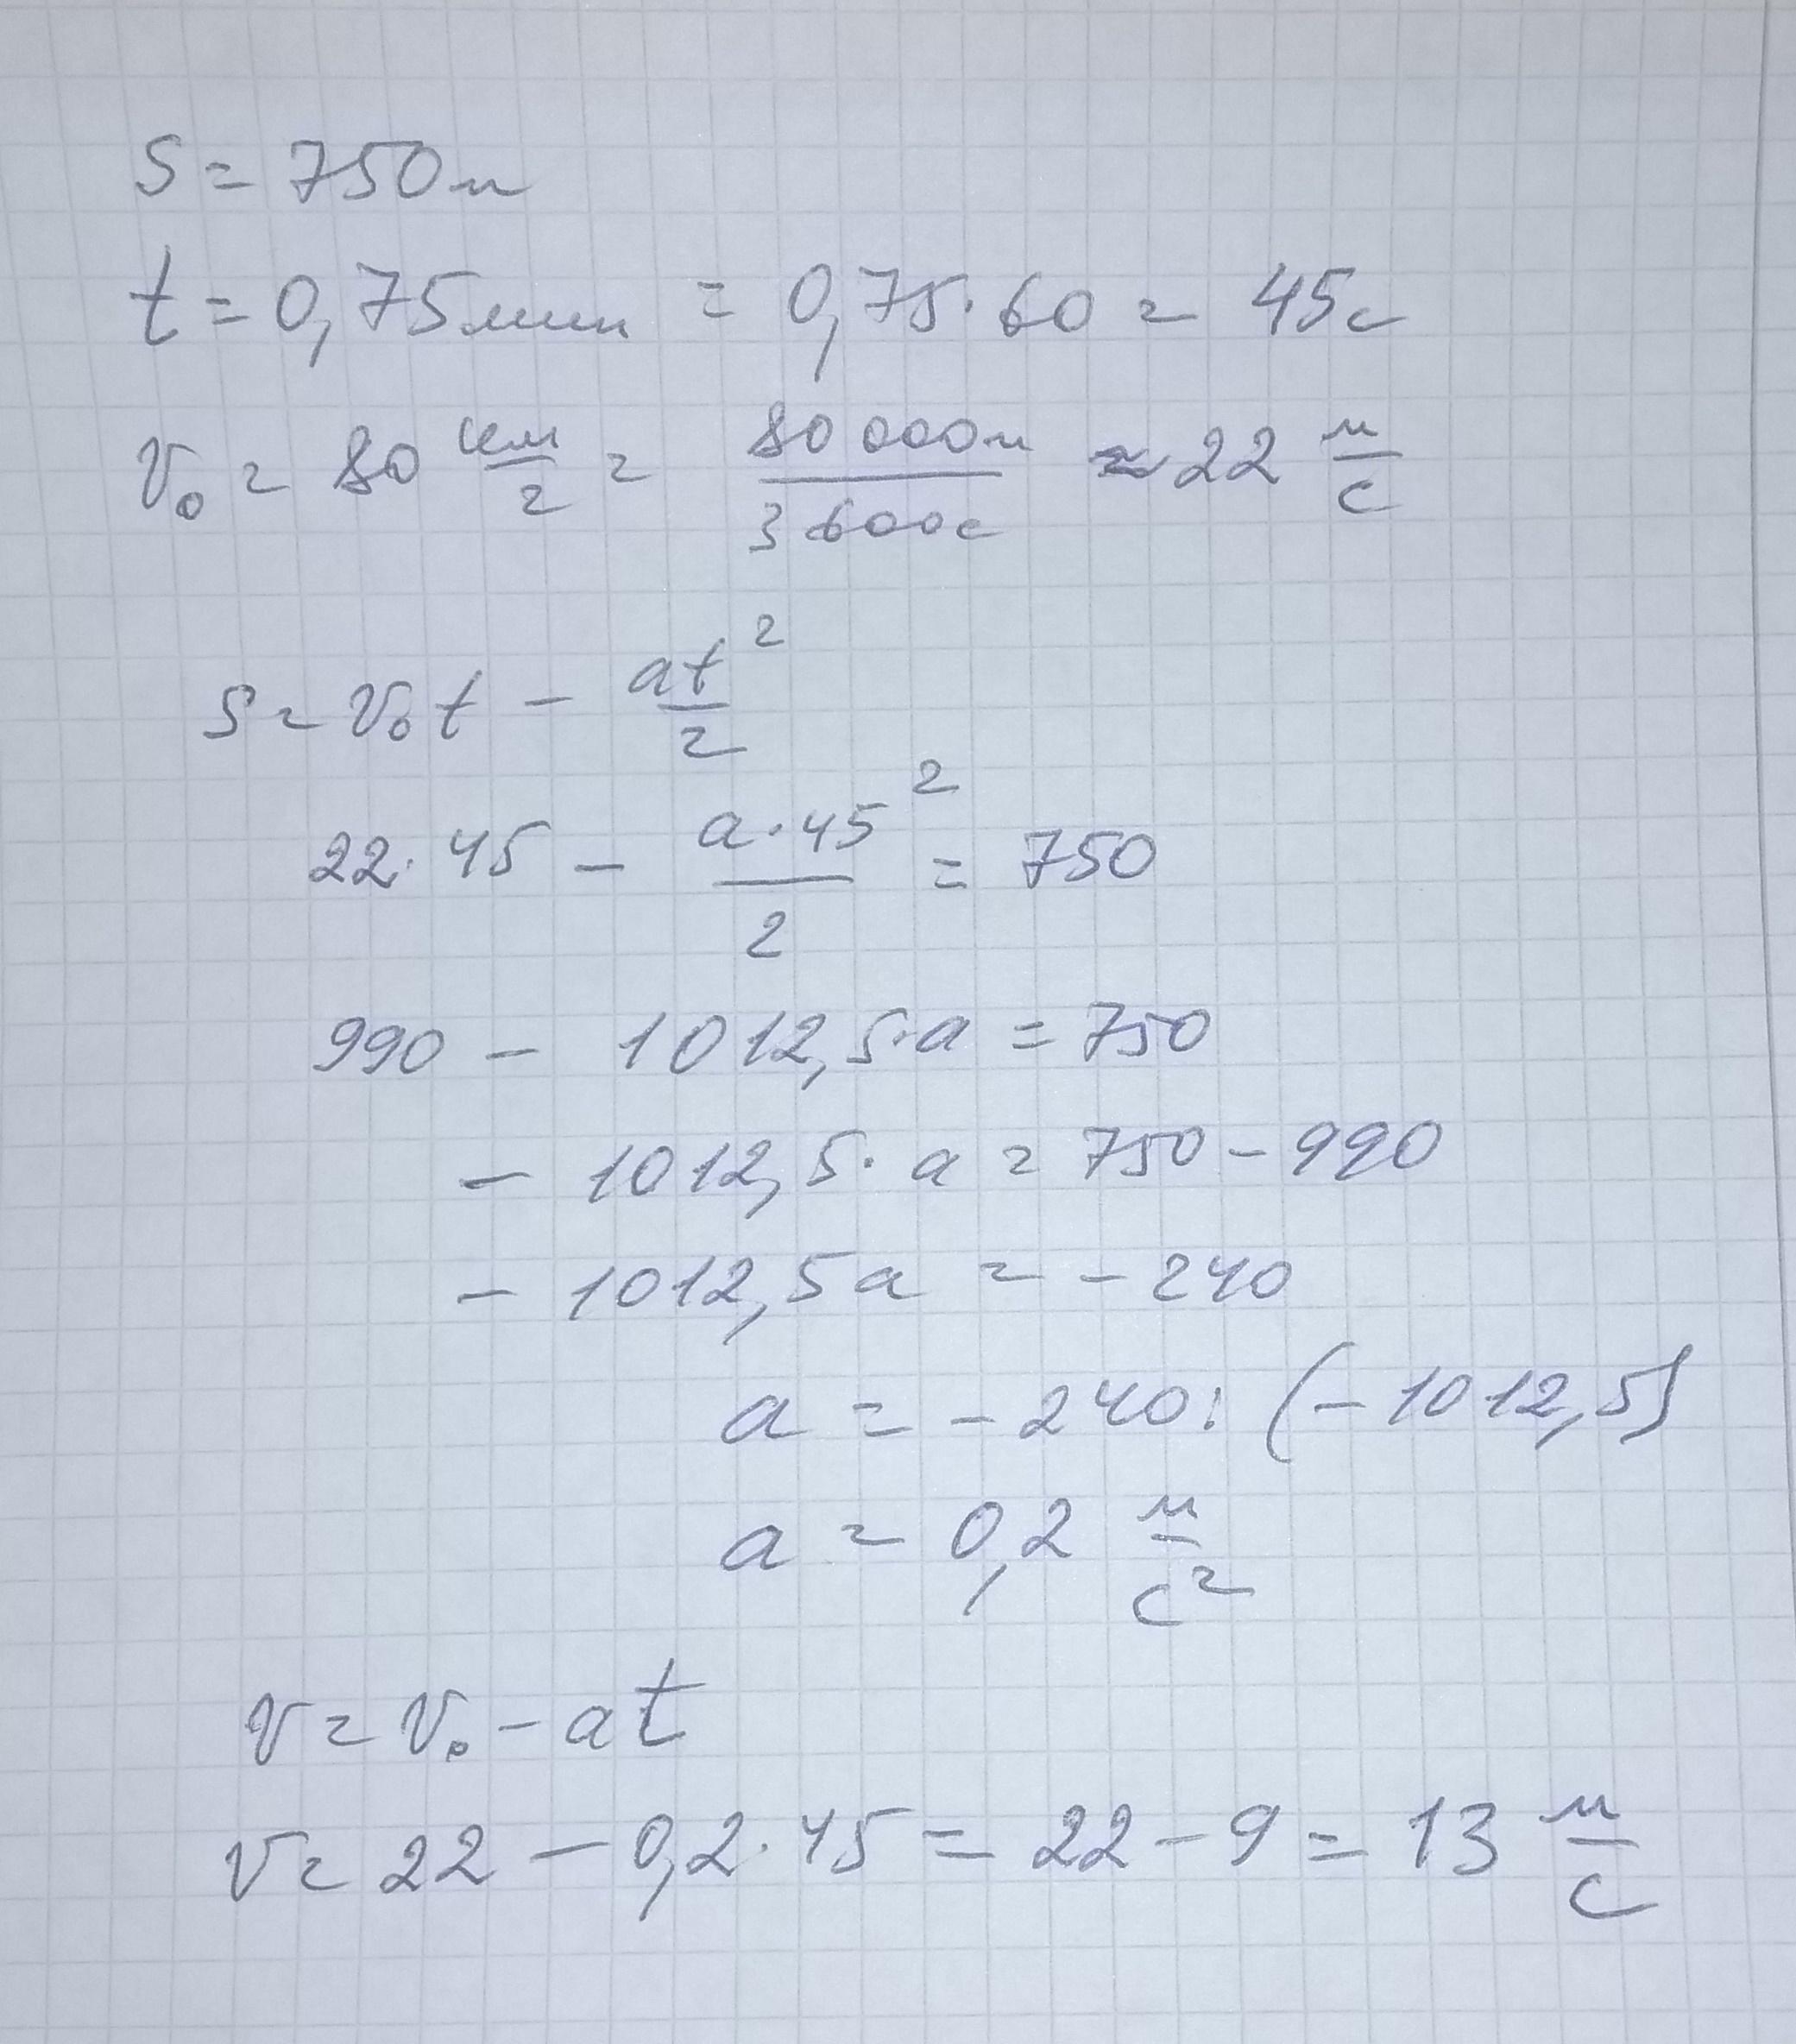 S = 750м
t = 0,75мин = 0,75·60 = 45с
V₀ = 80 км/г = 80 000м/3600с ≈ 22 м/с
S = V₀t - at²/2
22·45 - a·45²/2 = 750
990 - 1012,5·a = 750
- 1012,5·a = 750 - 990
- 1012,5a = - 240
a = - 240 : (- 1012,5)
a = 0,2 м/с²
V = V₀ - at
V = 22 - 0,2·45 = 22 - 9 = 13 м/с